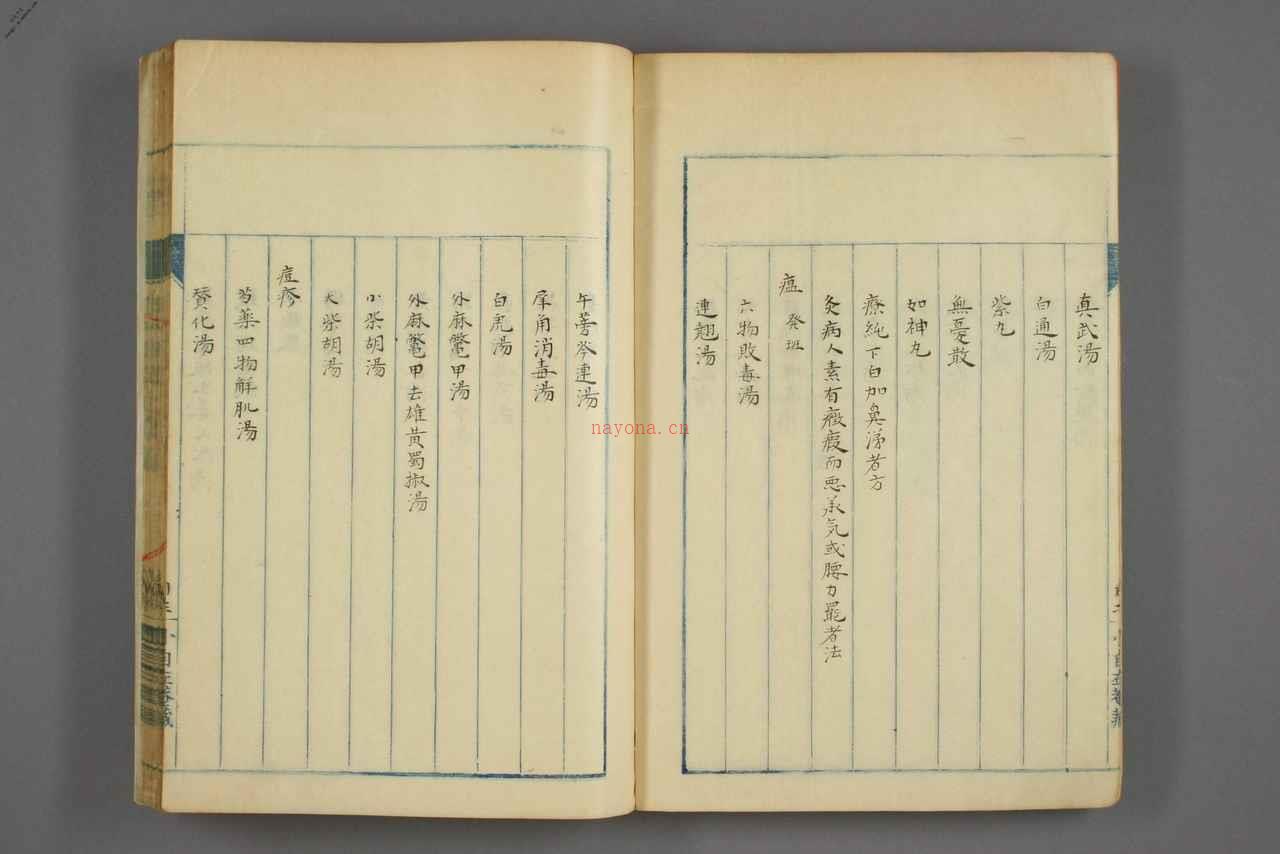 真武湯
白通湯
紫丸
無憂散
如神丸
療純下白加鼻涕者方
灸病人素有癥瘕而悪
气或腰力罷者法
瘟 発斑
六物敗毒湯
連翹湯
牛蒡芩連湯
犀角消毒湯
白虎湯
升麻鼈甲湯
升麻鼈甲去雄黄蜀椒湯
小柴胡湯
大柴胡湯
痘疹
芍薬四物解肌湯
賛化湯
nayona.cn